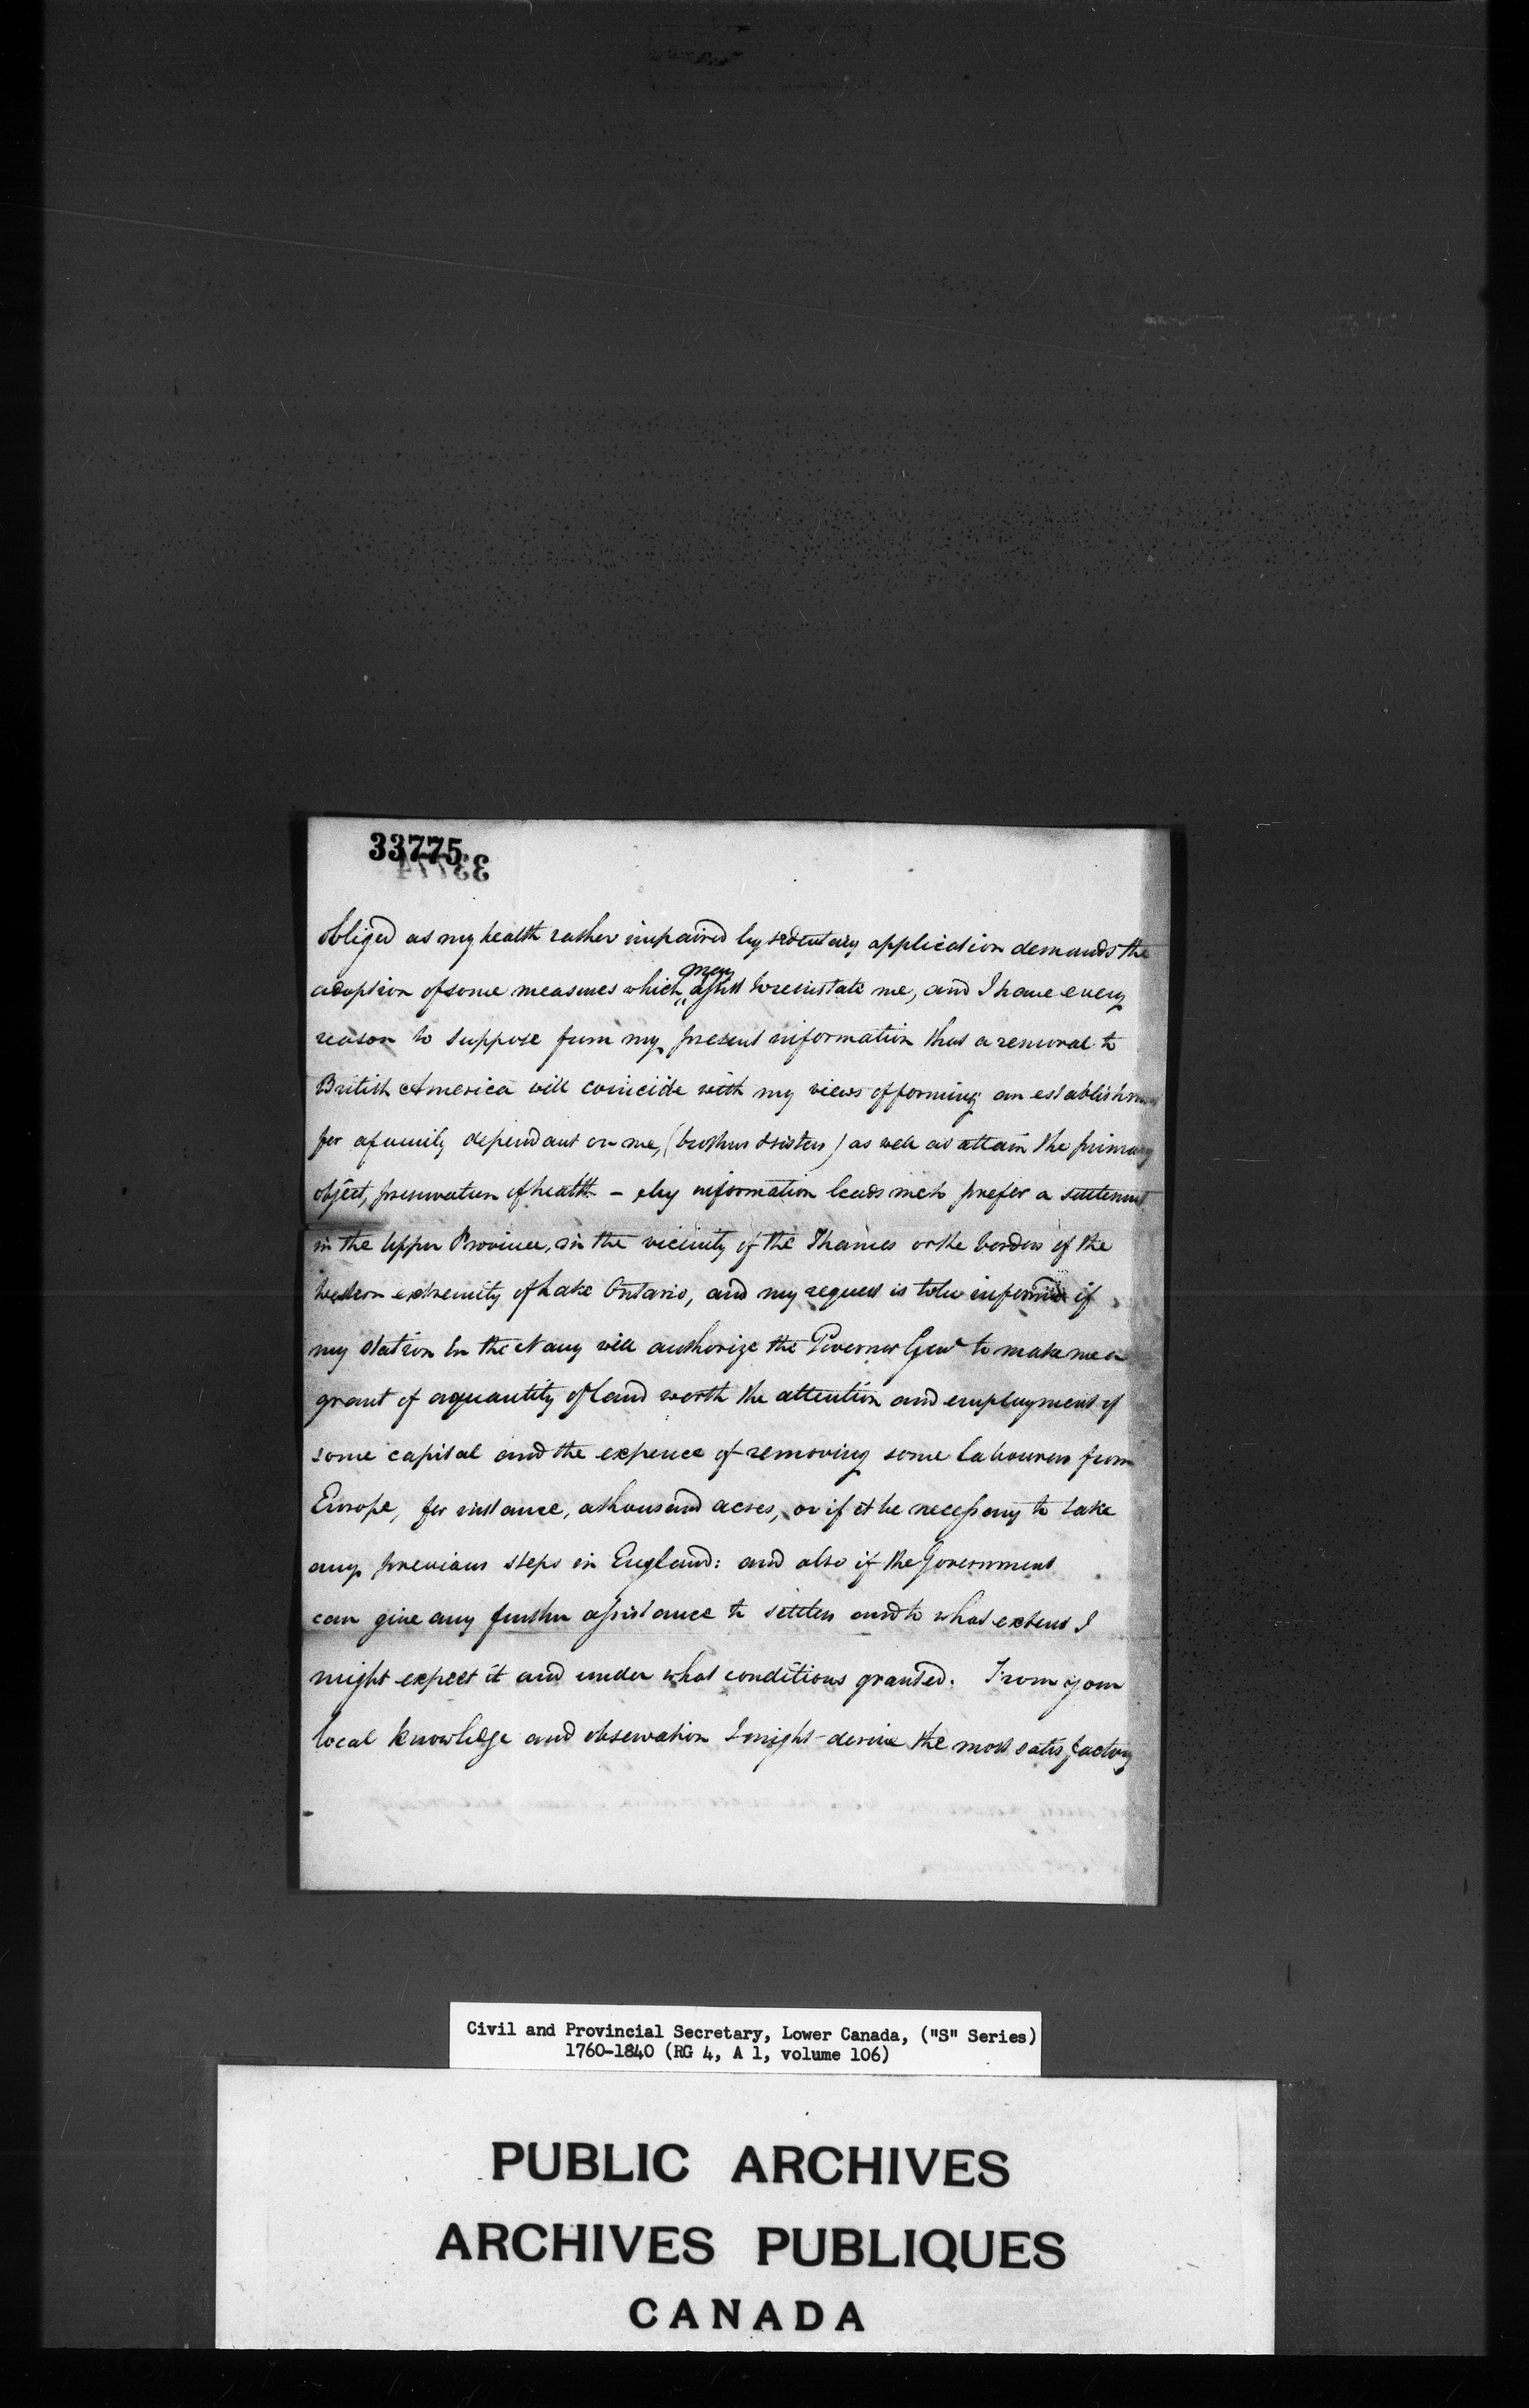 33775
33774
obliged as my health rather impaired by sedentary application demands the
may
adoption of some measures which assist to reinstate me, and I have every
reason to suppose from my present information that a removal to
British America will coincide with my views of forming an establishment
for a family dependant on me, (brothers & sisters) as well as attain the primary
object, preservation of health - My information leads me to prefer a settlement
in the Upper Province, in the vicinity of the Thames or the borders of the
western extremity of Lake Ontario, and my request is to be informed if
my station in the Navy will authorize the Governor Genl to make me a
grant of a quantity of land worth the attention and employment of
some capital and the expence of removing some labourers from
Europe, for instance, a thousand acres, or if it be necessary to take
any previous steps in England: and also if the Government
can give any further assistance to settlers and to what extent I
might expect it and under what conditions granted. From your
local knowledge and observation I might derive the most satisfactory
Civil and Provincial Secretary, Lower Canada, ("S" Series)
1760-1840 (RG 4, A 1, volume 106)
PUBLIC ARCHIVES
ARCHIVES PUBLIQUES
CANADA